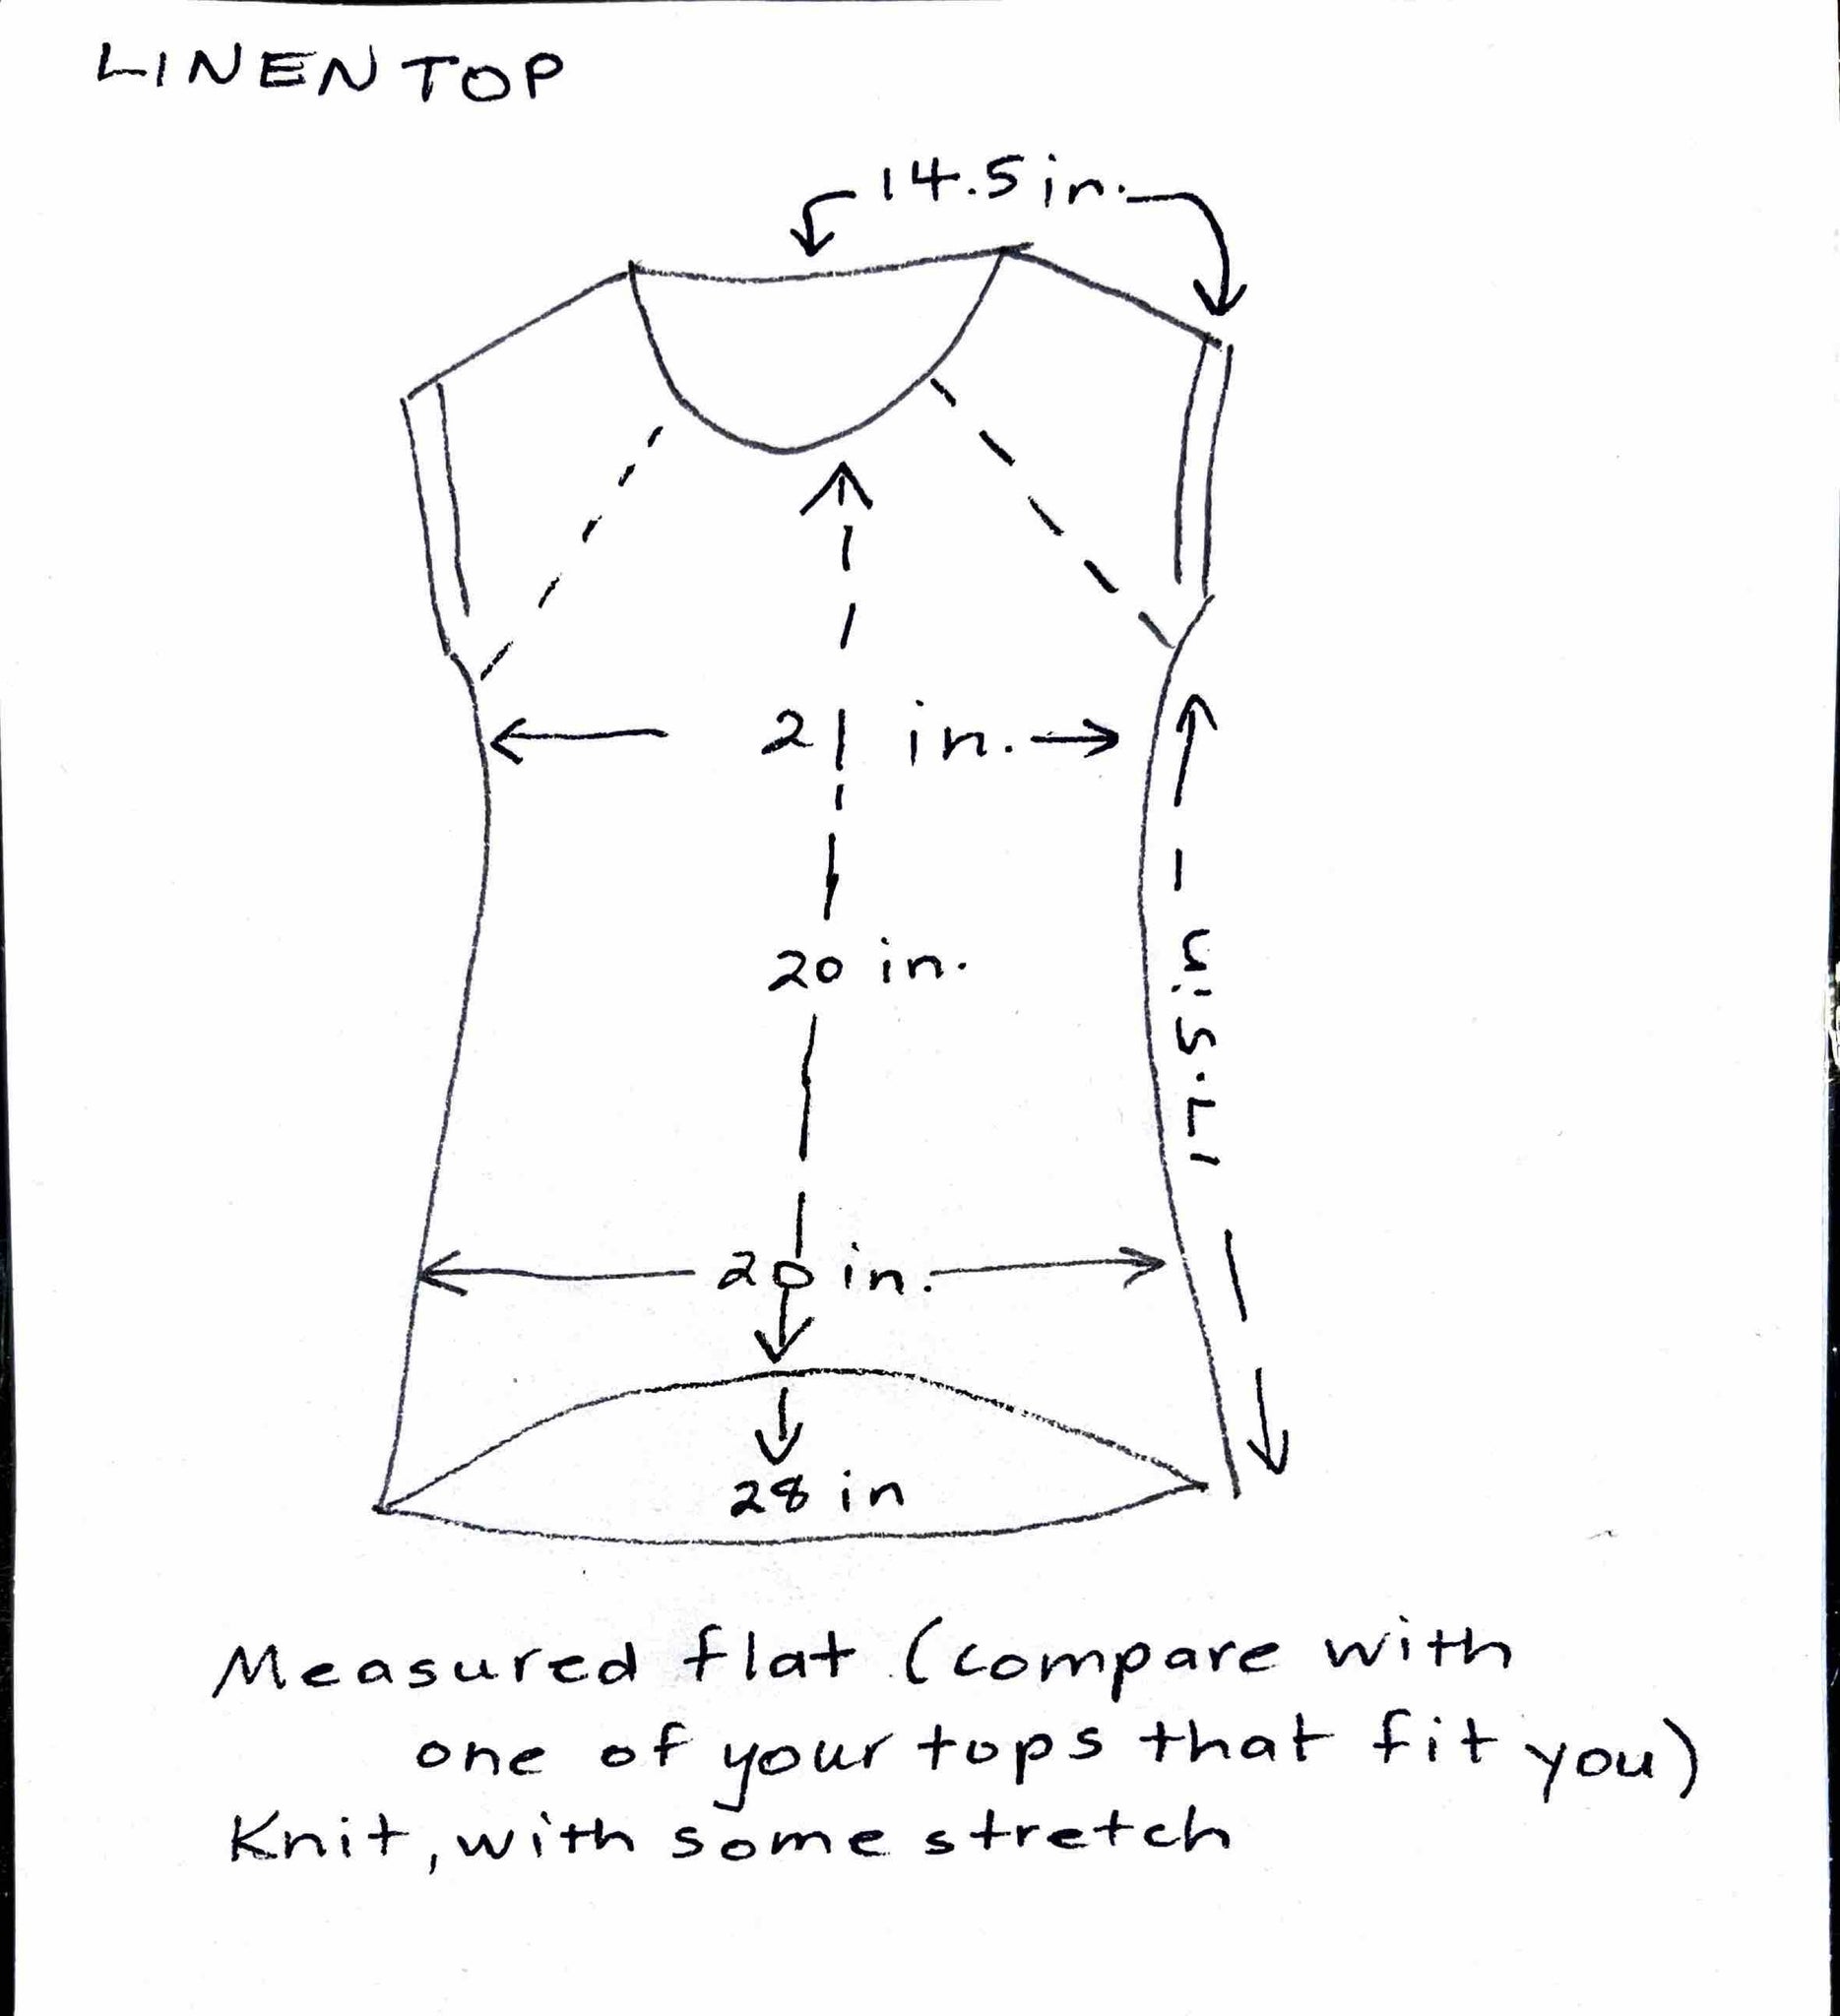 LINEN TOP
14.5 in.
21 in.
17.5 in
20 in.
20 in.
28 in
Measured flat (compare with
one of your tops that fit you)
Knit, with some stretch